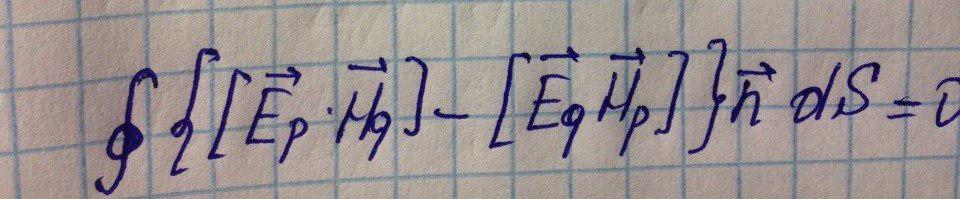 ∮ {[E⃗p · H⃗q] − [E⃗q H⃗p]} n⃗ dS = 0